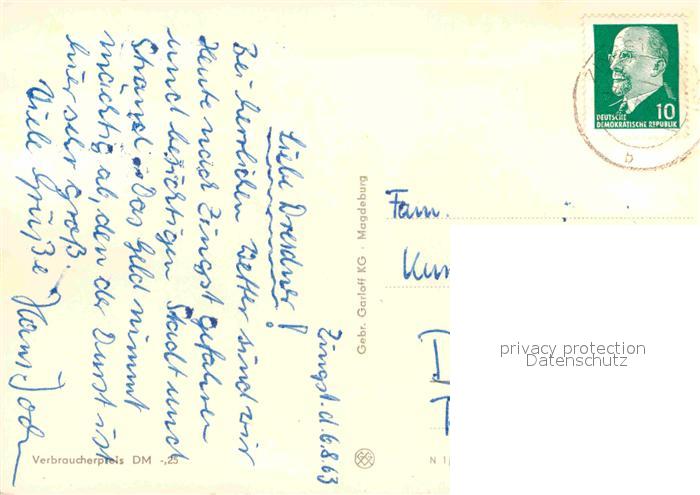 Zingst. d. 6.8.63
Liebe Dresdner!
Bei herrlichen Wetter sind wir
Heute nach Zingst gefahren
und besichtigen Stadt und
Strand. Das Geld nimmt
mächtig ab, den der Durst ist
hier sehr groß.
Viele Grüße Hans
Fam.
Gebr. Garloff KG · Magdeburg
Verbraucherpreis DM -,25
N 1
10
DEUTSCHE
DEMOKRATISCHE REPUBLIK
b
privacy protection
Datenschutz